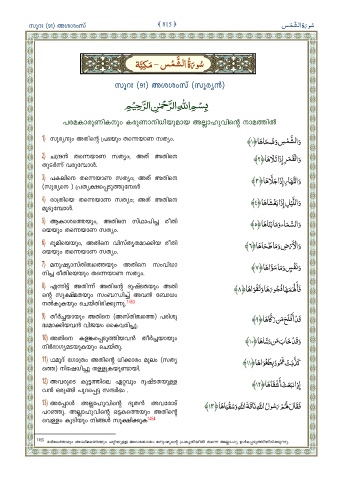 സൂറഃ (91) അശ്ശംസ് ﴾ 815 ﴿ سُورَةُ الشَّمْس
سُورَةُ الشَّمْس - مَكِّيَّة
സൂറഃ (91) അശ്ശംസ് (സൂര്യൻ)
بِسْمِ اللَّهِ الرَّحْمَٰنِ الرَّحِيمِ
പരമകാരുണികനും കരുണാനിധിയുമായ അല്ലാഹുവിന്റെ നാമത്തിൽ
1) സൂര്യനും അതിന്റെ പ്രഭയും തന്നെയാണ സത്യം.
وَالشَّمْسِ وَضُحَاهَا ﴿١﴾
2) ചന്ദ്രൻ തന്നെയാണ സത്യം; അത് അതിനെ
തുടർന്ന് വരുമ്പോൾ.
وَالْقَمَرِ إِذَا تَلَاهَا ﴿٢﴾
3) പകലിനെ തന്നെയാണ സത്യം; അത് അതിനെ
(സൂര്യനെ ) പ്രത്യക്ഷപ്പെടുത്തുമ്പോൾ
وَالنَّهَارِ إِذَا جَلَّاهَا ﴿٣﴾
4) രാത്രിയെ തന്നെയാണ സത്യം; അത് അതിനെ
മൂടുമ്പോൾ.
وَاللَّيْلِ إِذَا يَغْشَاهَا ﴿٤﴾
5) ആകാശത്തെയും, അതിനെ സ്ഥാപിച്ച രീതി
യെയും തന്നെയാണ സത്യം.
وَالسَّمَاءِ وَمَا بَنَاهَا ﴿٥﴾
6) ഭൂമിയെയും, അതിനെ വിസ്തൃതമാക്കിയ രീതി
യെയും തന്നെയാണ സത്യം.
وَالْأَرْضِ وَمَا طَحَاهَا ﴿٦﴾
7) മനുഷ്യാസ്തിത്വത്തെയും അതിനെ സംവിധാ
നിച്ച രീതിയെയും തന്നെയാണ സത്യം.
وَنَفْسٍ وَمَا سَوَّاهَا ﴿٧﴾
8) എന്നിട്ട് അതിന്ന് അതിന്റെ ദുഷ്ടതയും അതി
ന്റെ സൂക്ഷ്മതയും സംബന്ധിച്ച് അവൻ ബോധം
നൽകുകയും ചെയ്തിരിക്കുന്നു.
فَأَلْهَمَهَا فُجُورَهَا وَتَقْوَاهَا ﴿٨﴾
9) തീർച്ചയായും അതിനെ (അസ്തിത്വത്തെ) പരിശു
ദ്ധമാക്കിയവൻ വിജയം കൈവരിച്ചു.
قَدْ أَفْلَحَ مَن زَكَّاهَا ﴿٩﴾
10) അതിനെ കളങ്കപ്പെടുത്തിയവൻ തീർച്ചയായും
നിർഭാഗ്യമടയുകയും ചെയ്തു.
وَقَدْ خَابَ مَن دَسَّاهَا ﴿١٠﴾
11) ഥമൂദ് ഗോത്രം അതിന്റെ ധിക്കാരം മൂലം (സത്യ
ത്തെ) നിഷേധിച്ചു തള്ളുകയുണ്ടായി.
كَذَّبَتْ ثَمُودُ بِطَغْوَاهَا ﴿١١﴾
12) അവരുടെ കൂട്ടത്തിലെ ഏറ്റവും ദുഷ്ടതയുള്ള
വൻ ഒരുങ്ങി പുറപ്പെട്ട സന്ദർഭം.
إِذِ انبَعَثَ أَشْقَاهَا ﴿١٢﴾
13) അപ്പോൾ അല്ലാഹുവിന്റെ ദൂതൻ അവരോട്
പറഞ്ഞു. അല്ലാഹുവിന്റെ ഒട്ടകത്തെയും അതിന്റെ
വെള്ളം കുടിയും നിങ്ങൾ സൂക്ഷിക്കുക
فَقَالَ لَهُمْ رَسُولُ اللَّهِ نَاقَةَ اللَّهِ وَسُقْيَاهَا ﴿١٣﴾